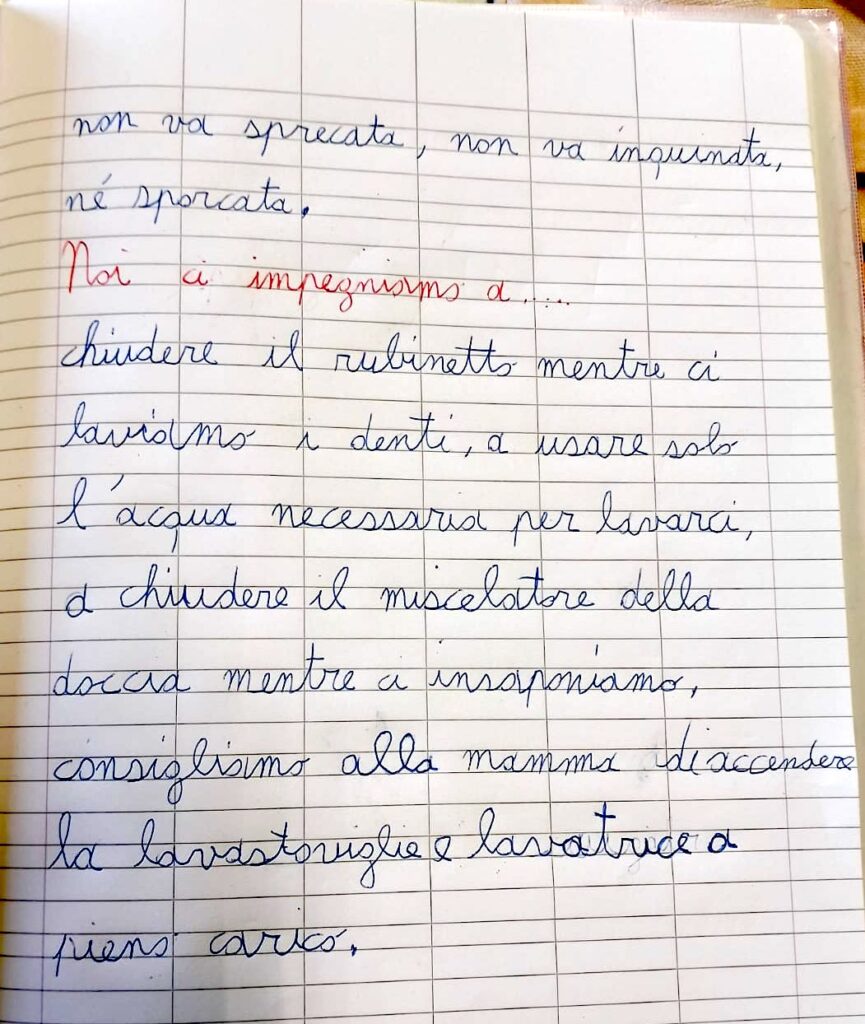 non va sprecata, non va inquinata,
né sporcata.
Noi ci impegniamo a.....
chiudere il rubinetto mentre ci
laviamo i denti, a usare solo
l'acqua necessaria per lavarci,
a chiudere il miscelatore della
doccia mentre ci insaponiamo,
consigliamo alla mamma di accendere
la lavastoviglie e lavatrice a
pieno carico.